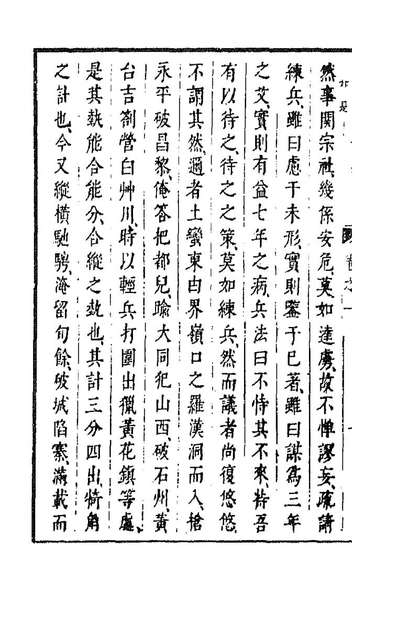 然事関宗社幾係安危莫如逹虜故不憚謬妄疏請
練兵雖曰慮于未形實則鑒于已著雖曰謀爲三年
之艾實則有益七年之病兵法曰不恃其不來恃吾
有以待之待之之策莫如練兵然而議者尚復悠悠
不謂其然邇者土蠻東由界嶺口之羅漢洞而入搶
永平破昌黎俺答把都兒踰大同犯山西破石州黃
台吉劄營白艸川時以輕兵打圍出獵黃花鎮等處
是其㪯能合能分合縱之㪯也其計三分四出犄角
之計也今又縱橫馳騁淹留旬餘破城陷寨滿載而